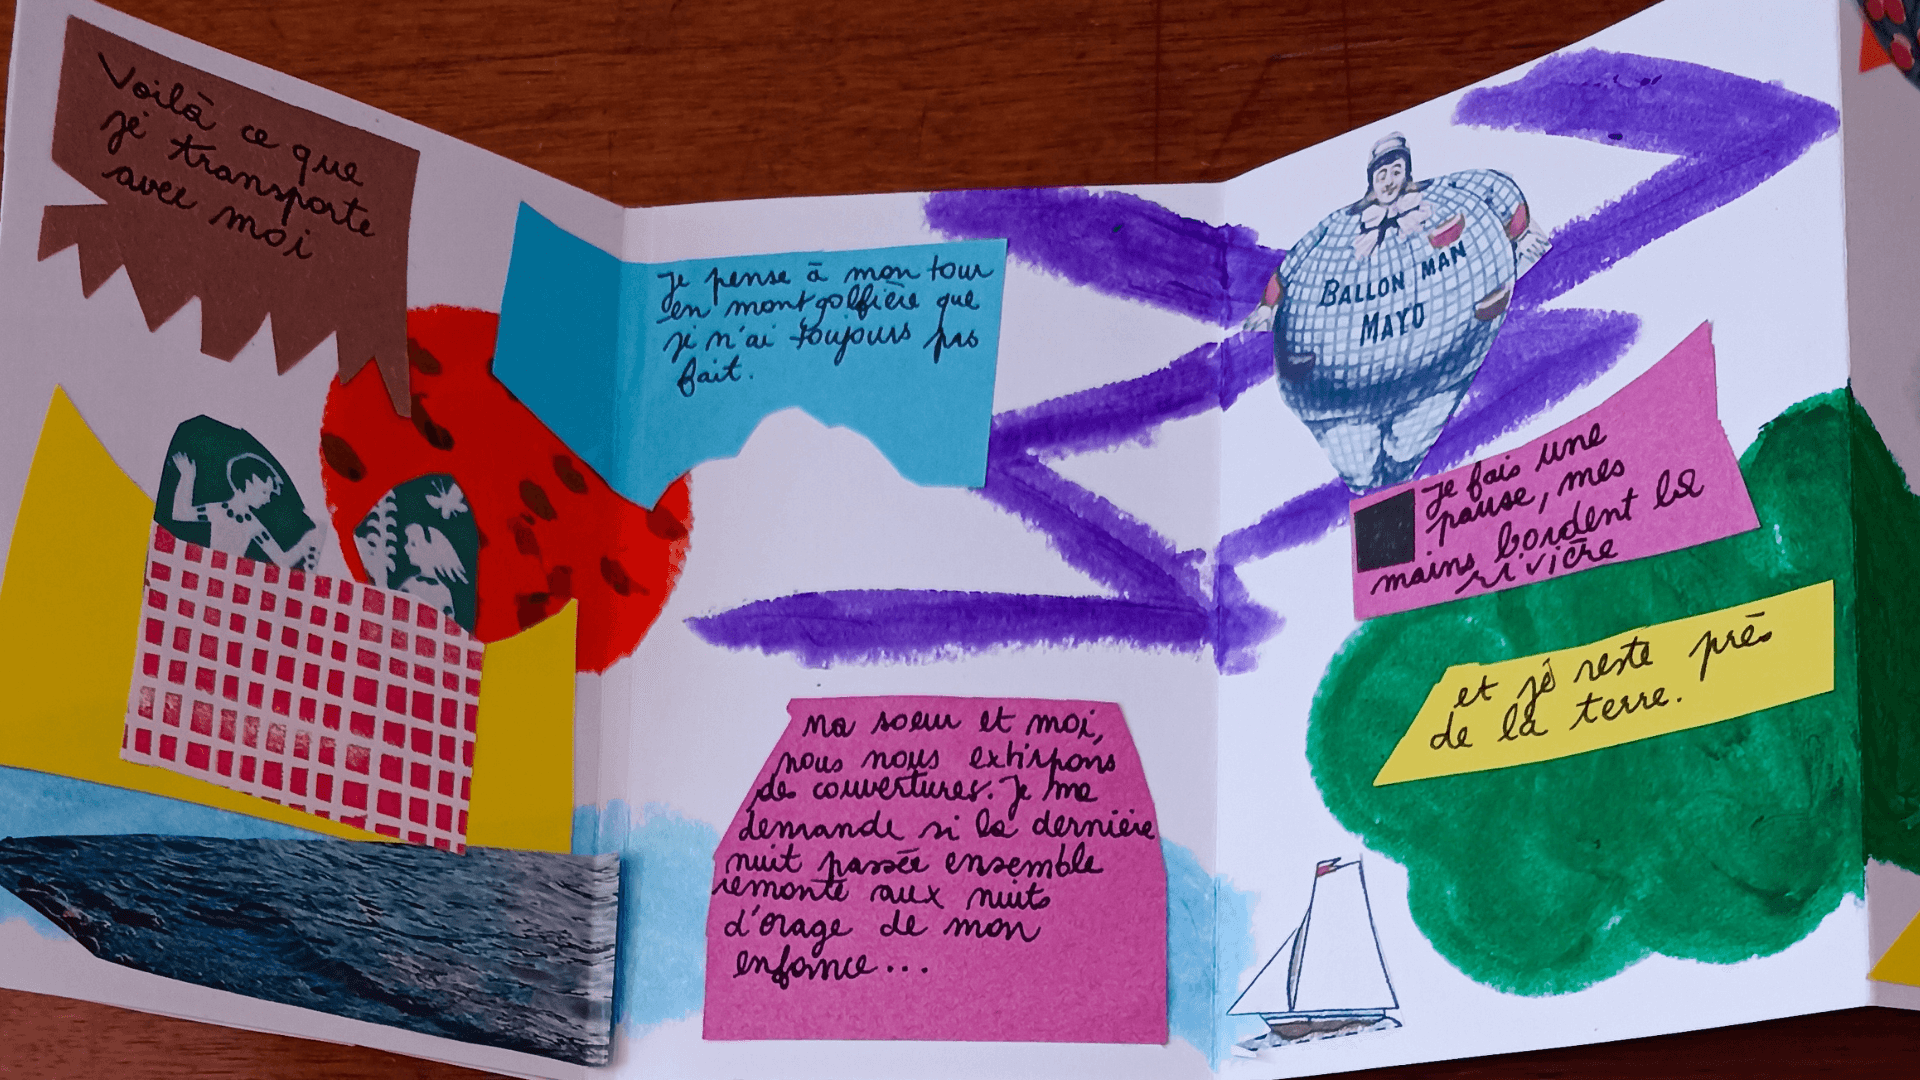 Voilà ce que
je transporte
avec moi
Je pense à mon tour
en montgolfière que
je n'ai toujours pas
fait.
Ma soeur et moi,
nous nous extirpons
de couvertures. Je me
demande si la dernière
nuit passée ensemble
remonte aux nuits
d'orage de mon
enfance...
BALLON MAN
MAYO
Je fais une
pause, mes
mains bordent la
rivière
et je reste près
de la terre.